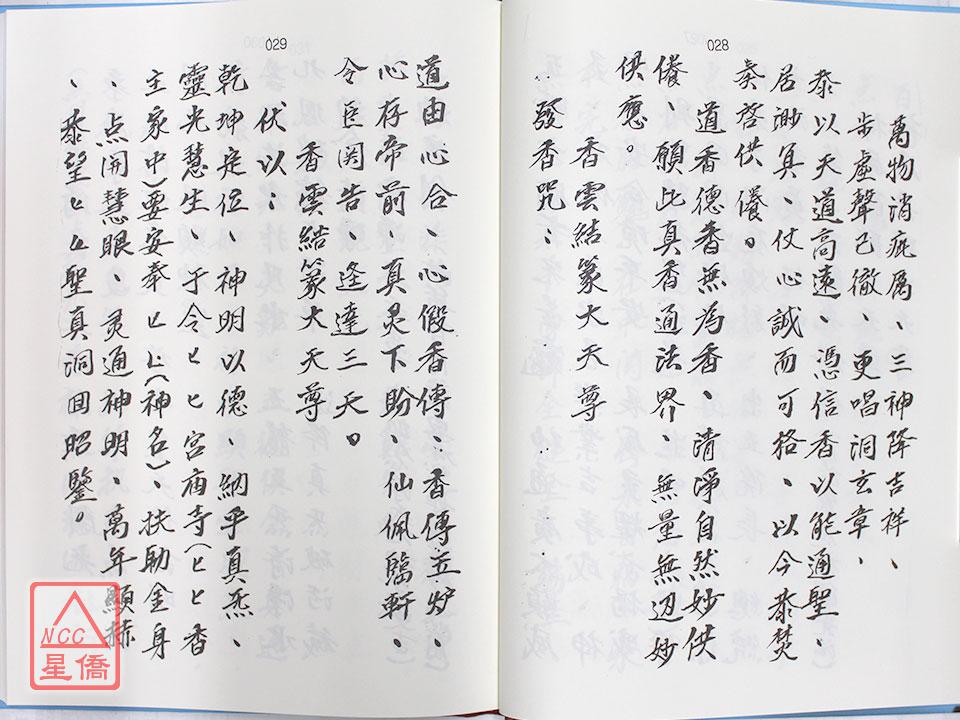 028
萬物消疵厲、三神降吉祥、
步虛聲已徹、更唱洞玄章、
泰以天道高遠、憑信香以能通聖、
居渺冥、仗心誠而可格、以今恭焚
奏啓供養。
道香德香無為香、清淨自然妙供
養、願此真香通法界、無量無边妙
供應。
香雲結篆大天尊
發香咒：
029
道由心合、心假香傳：香傳玉炉、
心存帝前、真灵下盼、仙佩臨軒、
令臣関告、逢達三天。
香雲結篆大天尊
伏以：
乾坤定位、神明以德、納乎真炁、
靈光慧生、于今ヒヒ宮庙寺（ヒヒ香
主家中）要安奉ヒヒ（神名）、扶助金身
、点開慧眼、灵通神明、萬年顯赫
、恭望ヒヒ聖真洞回昭鑒。
NCC
星僑